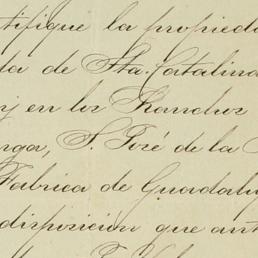 tifique la propieda
da de Sta. Catalina
en los Ranchos
S. José de la
Fabrica de Guadalu
disposicion que ant